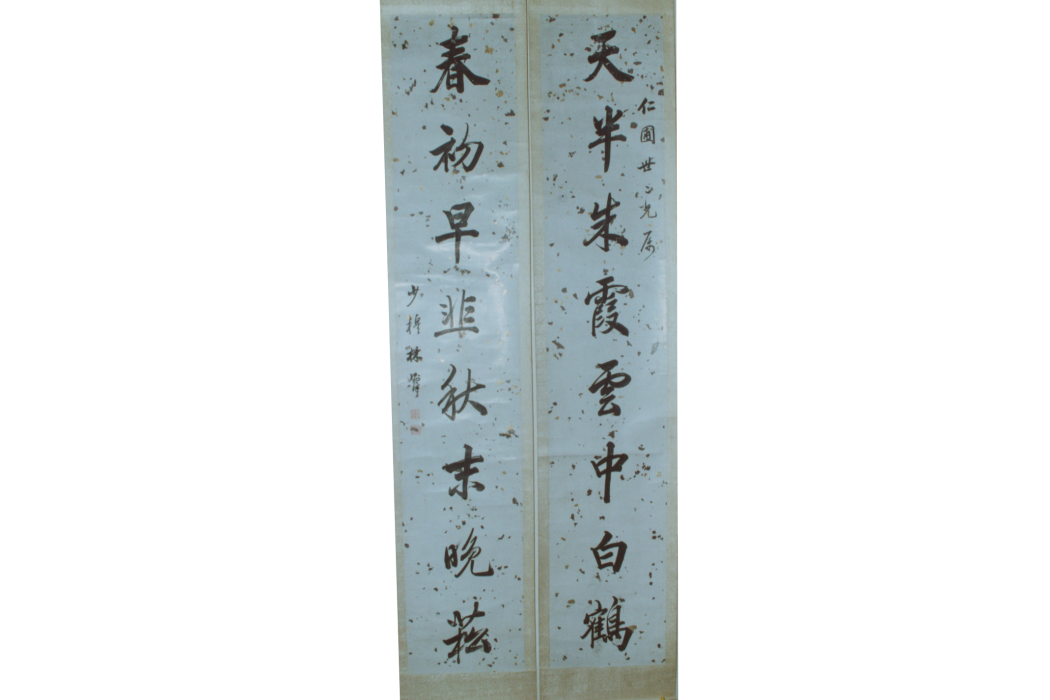 仁圃世仁兄屬
天半朱霞雲中白鶴
春初早韭秋末晚菘
少穆林